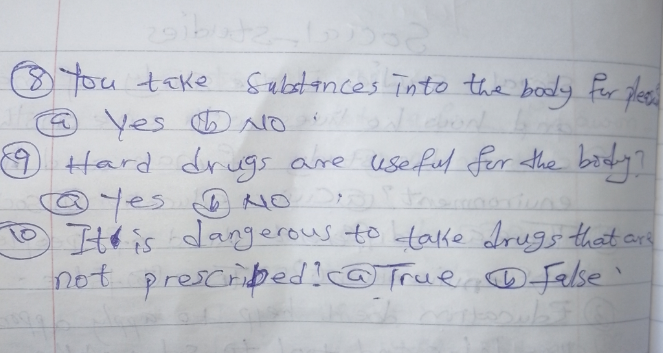 ⑧ You take Substances into the body for
ⓐ Yes ⓑ NO
⑨ Hard drugs are useful for the body?
ⓐ Yes ⓑ NO
⑩ It is dangerous to take drugs that are
not prescribed? ⓐ True ⓑ False